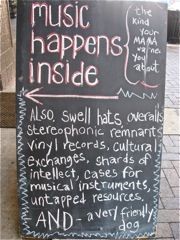 music
happens
inside
(the
kind
your
MAMA
warned
you
about.
Also, swell hats, overalls
stereophonic remnants
vinyl records, cultural
exchanges, shards of
intellect, cases for
musical instruments,
untapped resources,
-AND- a very friendly
dog